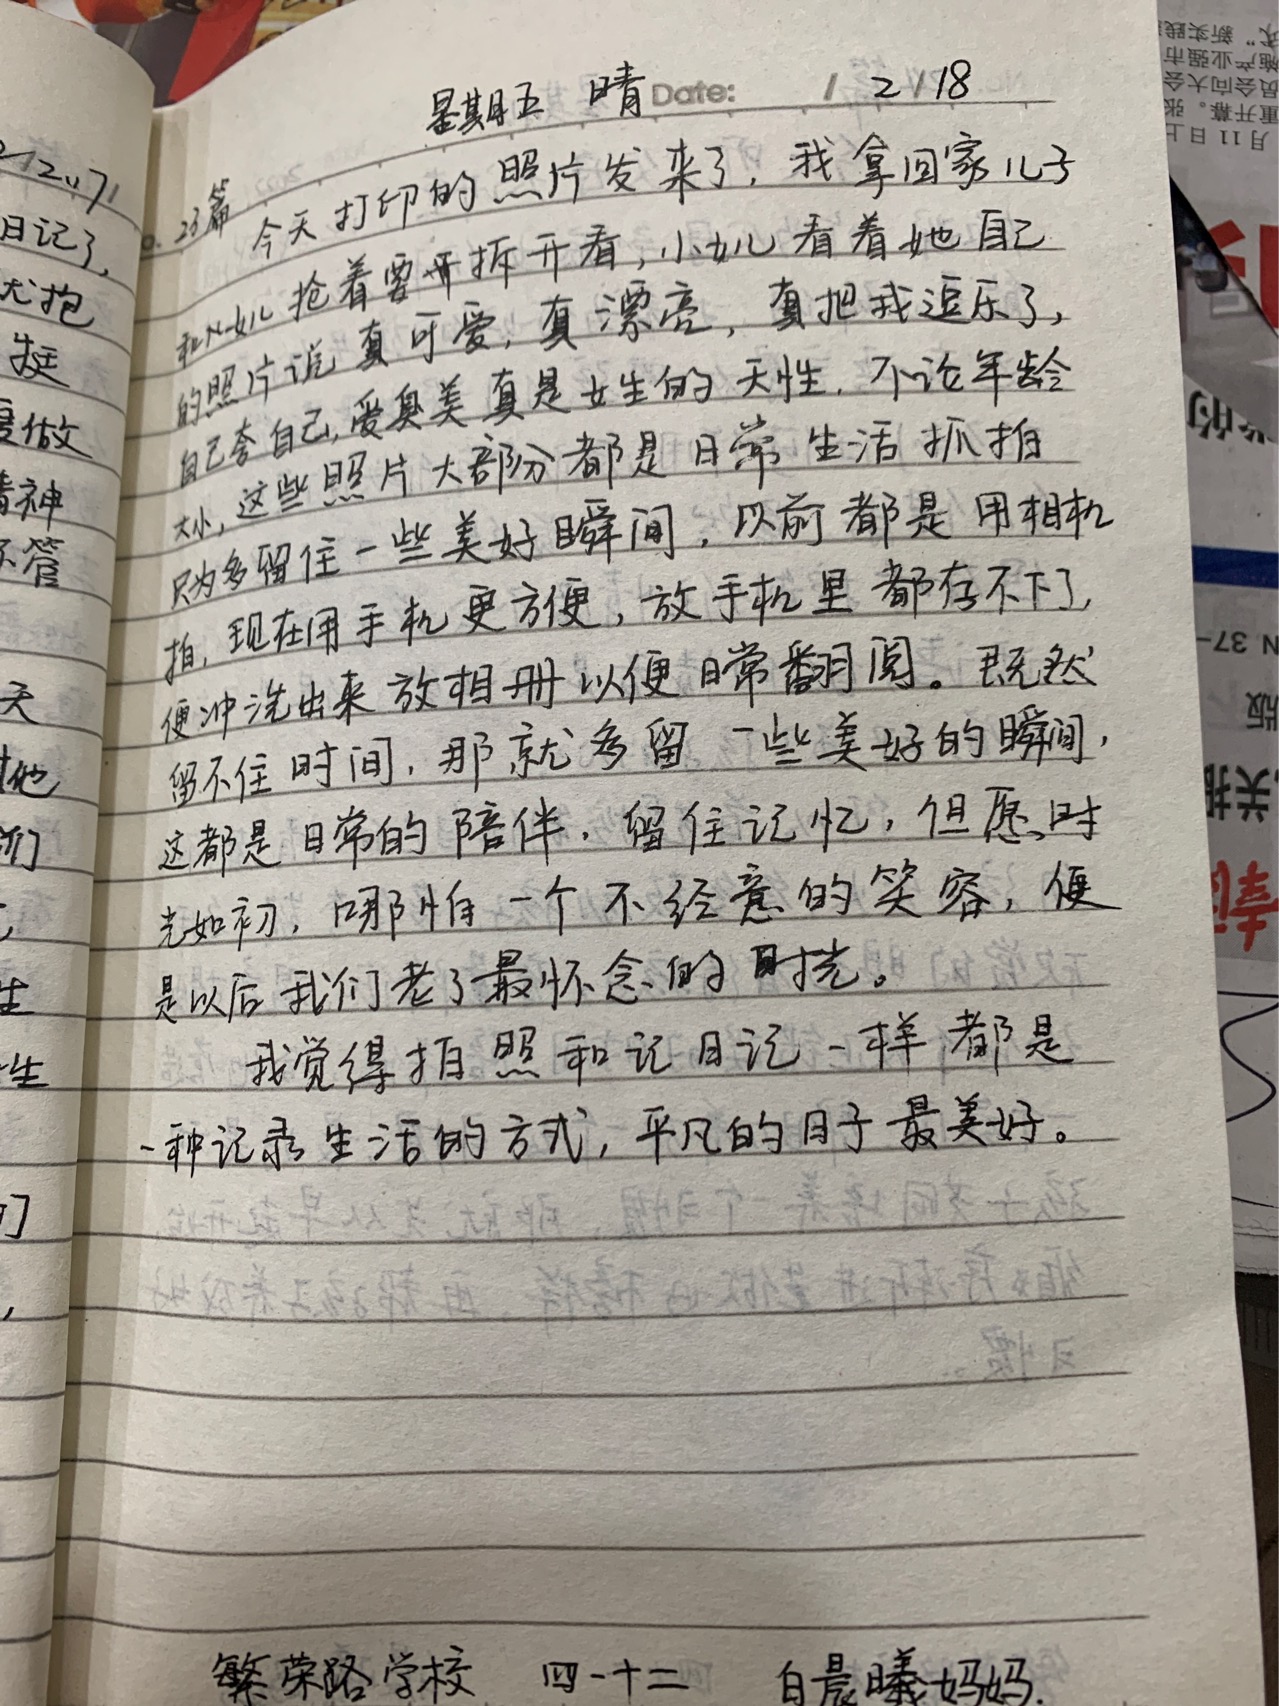 星期五 晴 Date: 2/18
23篇 今天打印的照片发来了，我拿回家儿子
和小女儿抢着要开拆开看，小女儿看着她自己
的照片说真可爱，真漂亮，真把我逗乐了，
自己夸自己，爱臭美真是女生的天性，不论年龄
大小，这些照片大部分都是日常生活抓拍
只为多留住一些美好瞬间，以前都是用相机
拍，现在用手机更方便，放手机里都存不下了，
便冲洗出来放相册以便日常翻阅。既然
留不住时间，那就多留一些美好的瞬间，
这都是日常的陪伴，留住记忆，但愿时
光如初，哪怕一个不经意的笑容，便
是以后我们老了最怀念的时光。
我觉得拍照和记日记一样都是
一种记录生活的方式，平凡的日子最美好。
繁荣路学校 四一十二 白晨曦妈妈
日记了，
尤抱
挺
度做
精神
不管
天
他
们
生
生
们